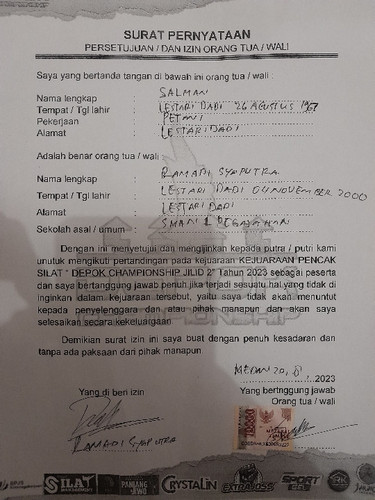 SURAT PERNYATAAN
PERSETUJUAN / DAN IZIN ORANG TUA / WALI
Saya yang bertanda tangan di bawah ini orang tua / wali :
Nama lengkap : SALMAN
Tempat / Tgl lahir : LESTARI DADI 26 AGUSTUS 1967
Pekerjaan : PETANI
Alamat : LESTARI DADI
Adalah benar orang tua / wali
Nama lengkap : RAMADI SYAPUTRA
Tempat / Tgl lahir : LESTARI DADI 04 NOVEMBER 2000
Alamat : LESTARI DADI
Sekolah asal / umum : SMAN 1 PEGAJAHAN
Dengan ini menyetujui dan mengijinkan kepada putra / putri kami
untuk mengikuti pertandingan pada kejuaraan KEJUARAAN PENCAK
SILAT " DEPOK CHAMPIONSHIP JILID 2" Tahun 2023 sebagai peserta
dan saya bertanggung jawab penuh jika terjadi sesuatu hal yang tidak di
inginkan dalam kejuaraan tersebut, yaitu saya tidak akan menuntut
kepada penyelenggara dan atau pihak manapun dan akan saya
selesaikan secara kekeluargaan
Demikian surat izin ini saya buat dengan penuh kesadaran dan
tanpa ada paksaan dari pihak manapun
MEDAN 20, 8, 2023
Yang di beri izin
Yang bertnggung jawab
Orang tua / wali
RAMADI SYAPUTRA
10000
SILAT
PAMANG
CRYSTALIN
EXTRAJOSS
SPORT
RK